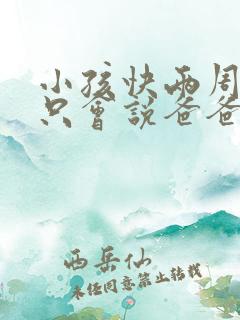 小孩快两周
只会说爸爸
西岳仙
未经同意禁止转载